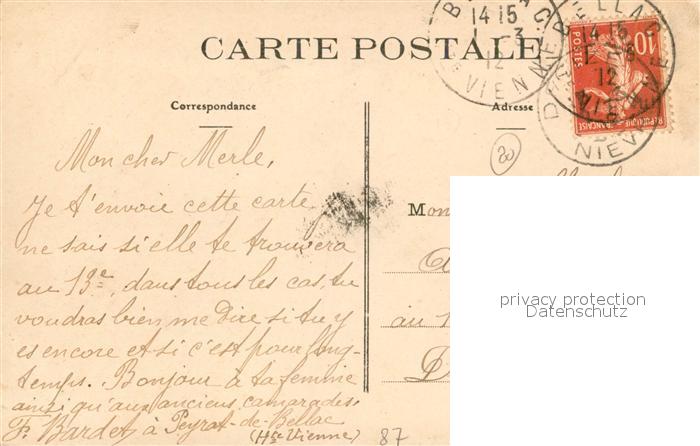 CARTE POSTALE
Correspondance
Adresse
BELLAC
14 15
12
VIENNE
POSTES
10
REPUBLIQUE FRANÇAISE
20
Mon cher Merle,
Je t'envoie cette carte
ne sais si elle te trouvera
au 13e, dans tous les cas, tu
voudras bien me dire si tu y
es encore et si c'est pour long-
temps. Bonjour à ta femme
ainsi qu'aux anciens camarades.
Fr. Bardet à Peyrat-de-Bellac
(Hte Vienne)
Mon
au 1
D
87
privacy protection
Datenschutz